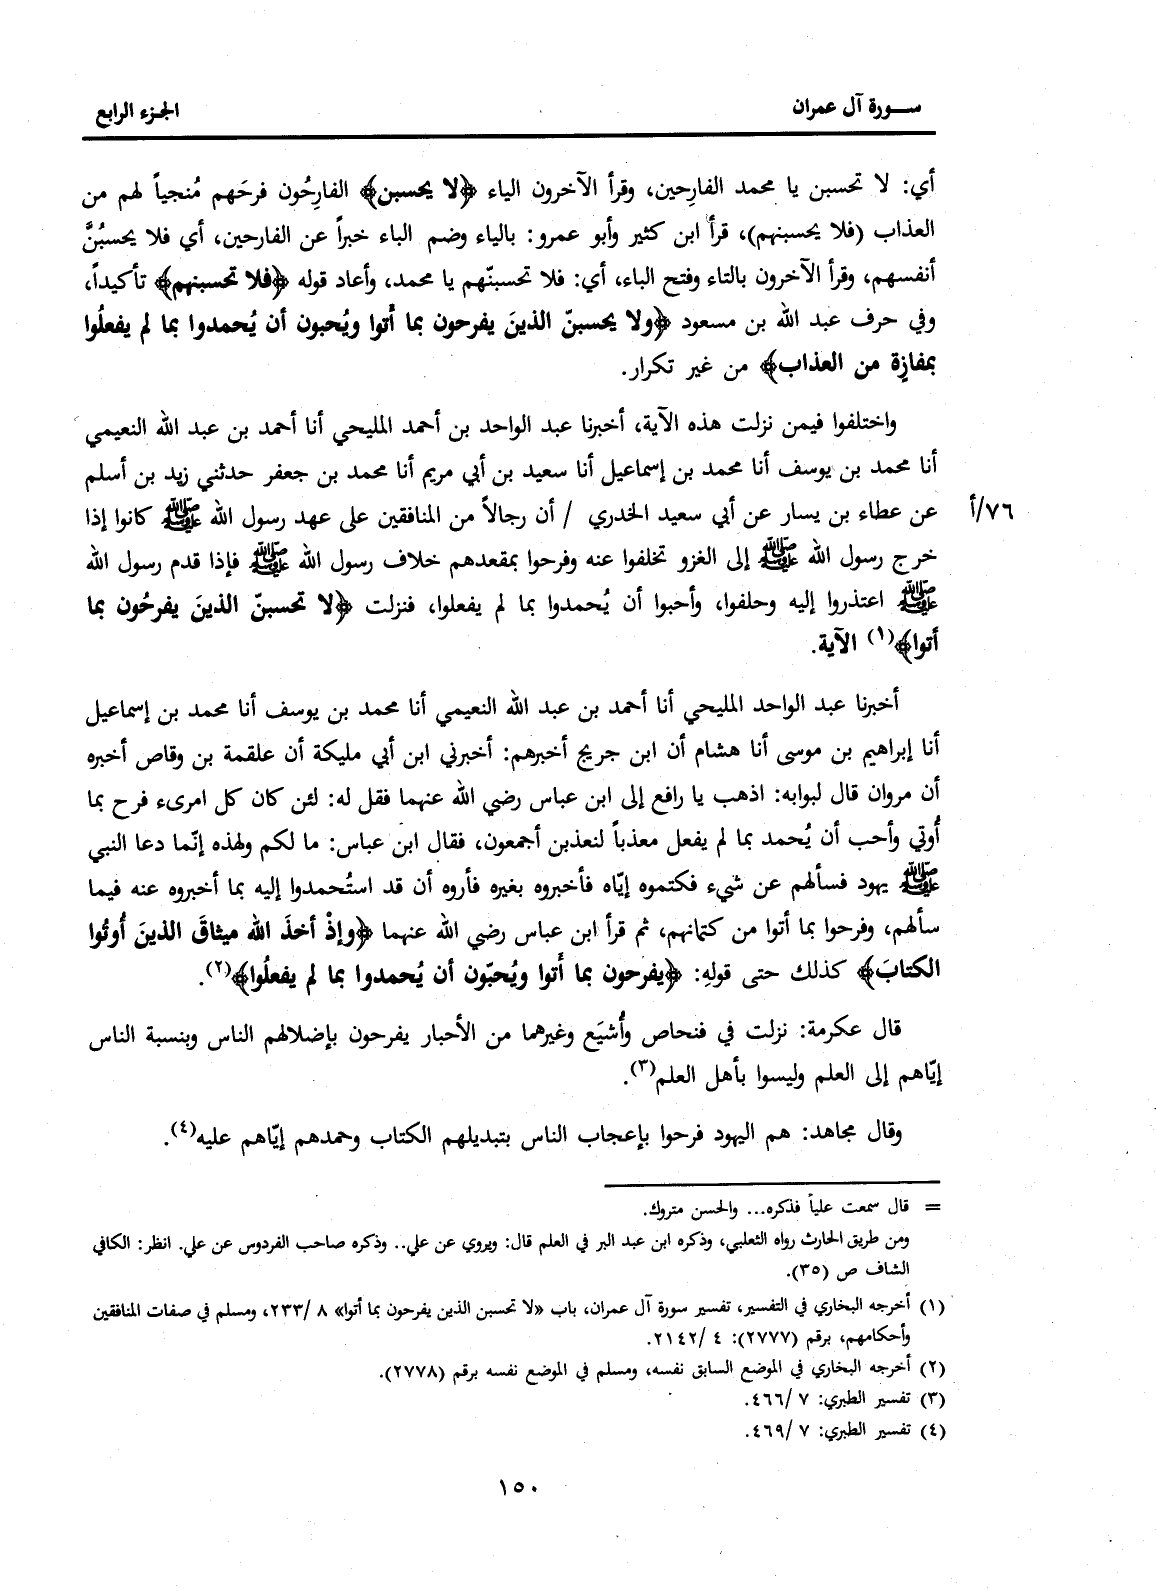 ســورة آل عمران
الجزء الرابع
أي: لا تحسبن يا محمد الفارِحين، وقرأ الآخرون الياء ﴿لا يحسبن﴾ الفارِحُون فرحَهم مُنجياً لهم من
العذاب (فلا يحسبنهم)، قرأ ابن كثير وأبو عمرو: بالياء وضم الباء خبراً عن الفارحين، أي فلا يحسبُنَّ
أنفسهم، وقرأ الآخرون بالتاء وفتح الباء، أي: فلا تحسبنّهم يا محمد، وأعاد قوله ﴿فلا تحسبنهم﴾ تأكيداً،
وفي حرف عبد الله بن مسعود ﴿ولا يحسبنّ الذينَ يفرحون بما أُتوا ويُحبون أن يُحمدوا بما لم يفعلُوا
بمفازةٍ من العذاب﴾ من غير تكرار.
واختلفوا فيمن نزلت هذه الآية، أخبرنا عبد الواحد بن أحمد المليحي أنا أحمد بن عبد الله النعيمي
أنا محمد بن يوسف أنا محمد بن إسماعيل أنا سعيد بن أبي مريم أنا محمد بن جعفر حدثني زيد بن أسلم
عن عطاء بن يسار عن أبي سعيد الخدري / أن رجالاً من المنافقين على عهد رسول الله ﷺ كانوا إذا
٧٦/أ
خرج رسول الله ﷺ إلى الغزو تخلفوا عنه وفرحوا بمقعدهم خلاف رسول الله ﷺ فإذا قدم رسول الله
ﷺ اعتذروا إليه وحلفوا، وأحبوا أن يُحمدوا بما لم يفعلوا، فنزلت ﴿لا تحسبنّ الذينَ يفرحُون بما
أتوا﴾(١) الآية.
أخبرنا عبد الواحد المليحي أنا أحمد بن عبد الله النعيمي أنا محمد بن يوسف أنا محمد بن إسماعيل
أنا إبراهيم بن موسى أنا هشام أن ابن جريج أخبرهم: أخبرني ابن أبي مليكة أن علقمة بن وقاص أخبره
أن مروان قال لبوابه: اذهب يا رافع إلى ابن عباس رضي الله عنهما فقل له: لئن كان كل امرىء فرح بما
أُوتي وأحب أن يُحمد بما لم يفعل معذباً لنعذبن أجمعون، فقال ابن عباس: ما لكم ولهذه إنّما دعا النبي
ﷺ يهود فسألهم عن شيء فكتموه إيّاه فأخبروه بغيره فأروه أن قد استُحمدوا إليه بما أخبروه عنه فيما
سألهم، وفرحوا بما أتوا من كتمانهم، ثم قرأ ابن عباس رضي الله عنهما ﴿وإذْ أخذَ الله ميثاقَ الذينَ أُوتُوا
الكتابَ﴾ كذلك حتى قولهِ: ﴿يفرحون بما أَتوا ويُحبّون أن يُحمدوا بما لم يفعلُوا﴾(٢).
قال عكرمة: نزلت في فنحاص وأُشيَع وغيرهما من الأحبار يفرحون بإضلالهم الناس وبنسبة الناس
إيّاهم إلى العلم وليسوا بأهل العلم(٣).
وقال مجاهد: هم اليهود فرحوا بإعجاب الناس بتبديلهم الكتاب وحمدهم إيّاهم عليه(٤).
= قال سمعت علياً فذكره... والحسن متروك.
ومن طريق الحارث رواه الثعلبي، وذكره ابن عبد البر في العلم قال: ويروي عن علي.. وذكره صاحب الفردوس عن علي. انظر: الكافي
الشاف ص (٣٥).
(١) أخرجه البخاري في التفسير، تفسير سورة آل عمران، باب «لا تحسبن الذين يفرحون بما أتوا» ٨/ ٢٣٣، ومسلم في صفات المنافقين
وأحكامهم، برقم (٢٧٧٧): ٤/ ٢١٤٢.
(٢) أخرجه البخاري في الموضع السابق نفسه، ومسلم في الموضع نفسه برقم (٢٧٧٨).
(٣) تفسير الطبري: ٧/ ٤٦٦.
(٤) تفسير الطبري: ٧/ ٤٦٩.
١٥٠